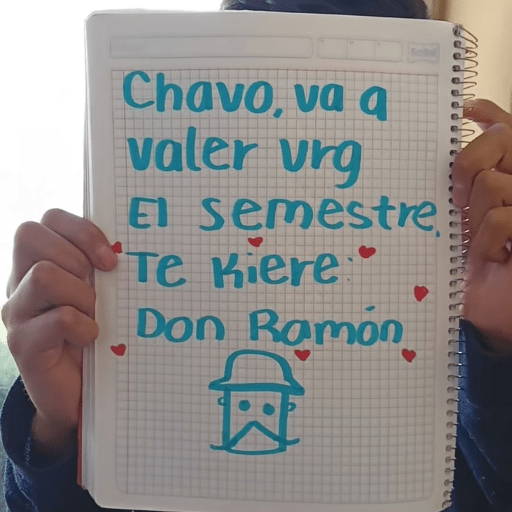 Chavo, va a
valer vrg
El semestre.
Te Kiere:
Don Ramón